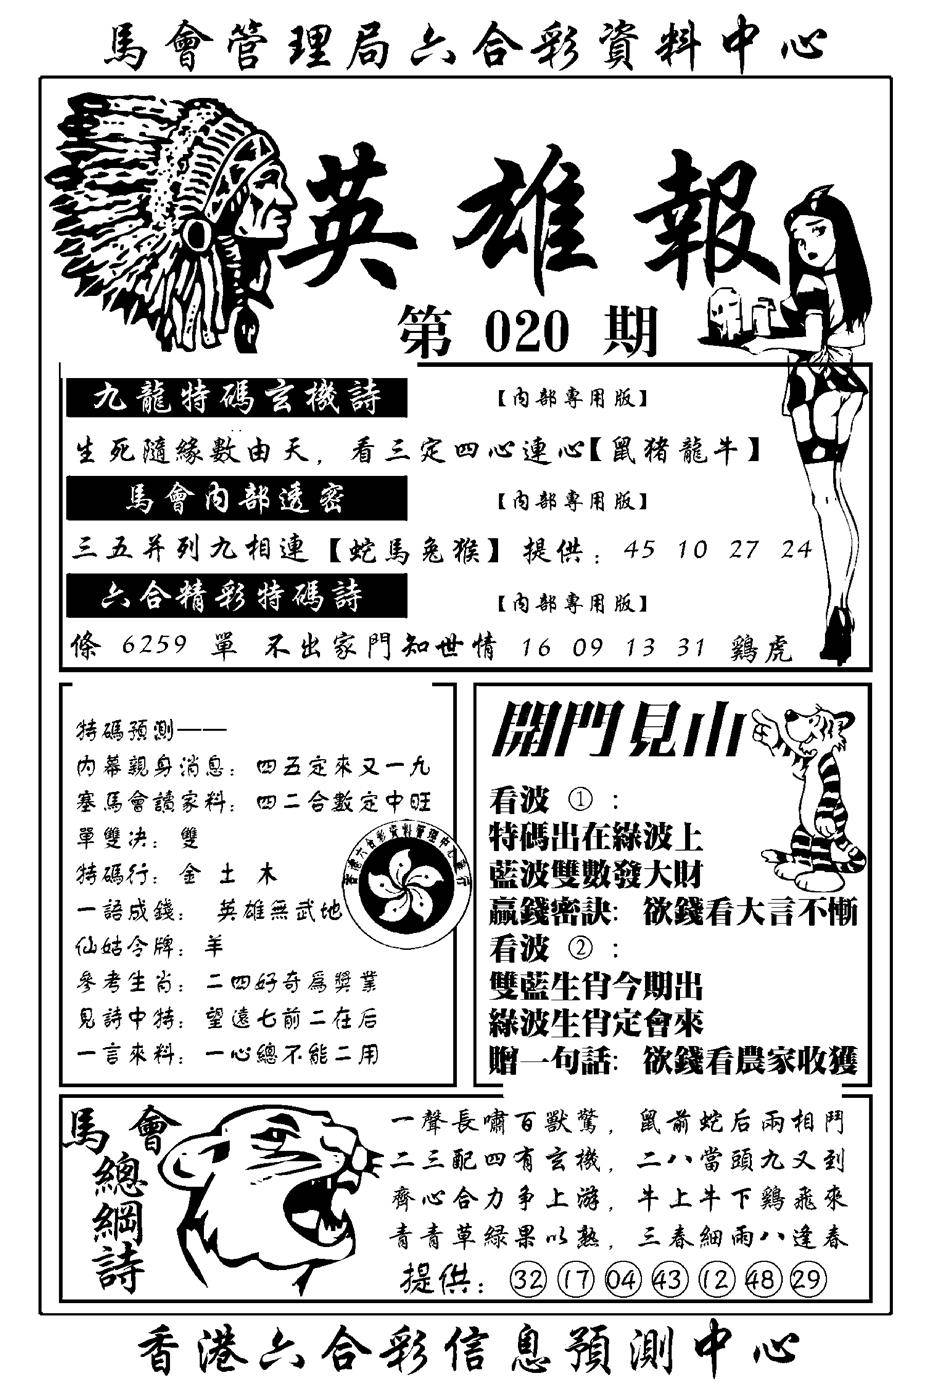 馬會管理局六合彩資料中心
英雄報
第 020 期
九龍特碼玄機詩 【內部專用版】
生死隨緣數由天，看三定四心連心【鼠猪龍牛】
馬會內部透密 【內部專用版】
三五并列九相連【蛇馬兔猴】提供：45 10 27 24
六合精彩特碼詩 【內部專用版】
條 6259 單 不出家門知世情 16 09 13 31 鷄虎
特碼預測——
內幕親身消息：四五定來又一九
塞馬會讀家料：四二合數定中旺
單雙決：雙
特碼行：金 土 木
一語成錢： 英雄無武地
仙姑令牌：羊
參考生肖：二四好奇爲獎業
見詩中特：望遠七前二在后
一言來料：一心總不能二用
香港六合彩資料管理中心發行
開門見山
看波 ① ：
特碼出在綠波上
藍波雙數發大財
贏錢密訣：欲錢看大言不慚
看波 ② ：
雙藍生肖今期出
綠波生肖定會來
贈一句話：欲錢看農家收獲
馬會
總綱詩
一聲長嘯百獸驚，鼠前蛇后兩相鬥
二三配四有玄機，二八當頭九又到
齊心合力爭上游，牛上牛下鷄飛來
青青草緑果以熟，三春細雨八逢春
提供：32 17 04 43 12 48 29
香港六合彩信息預測中心